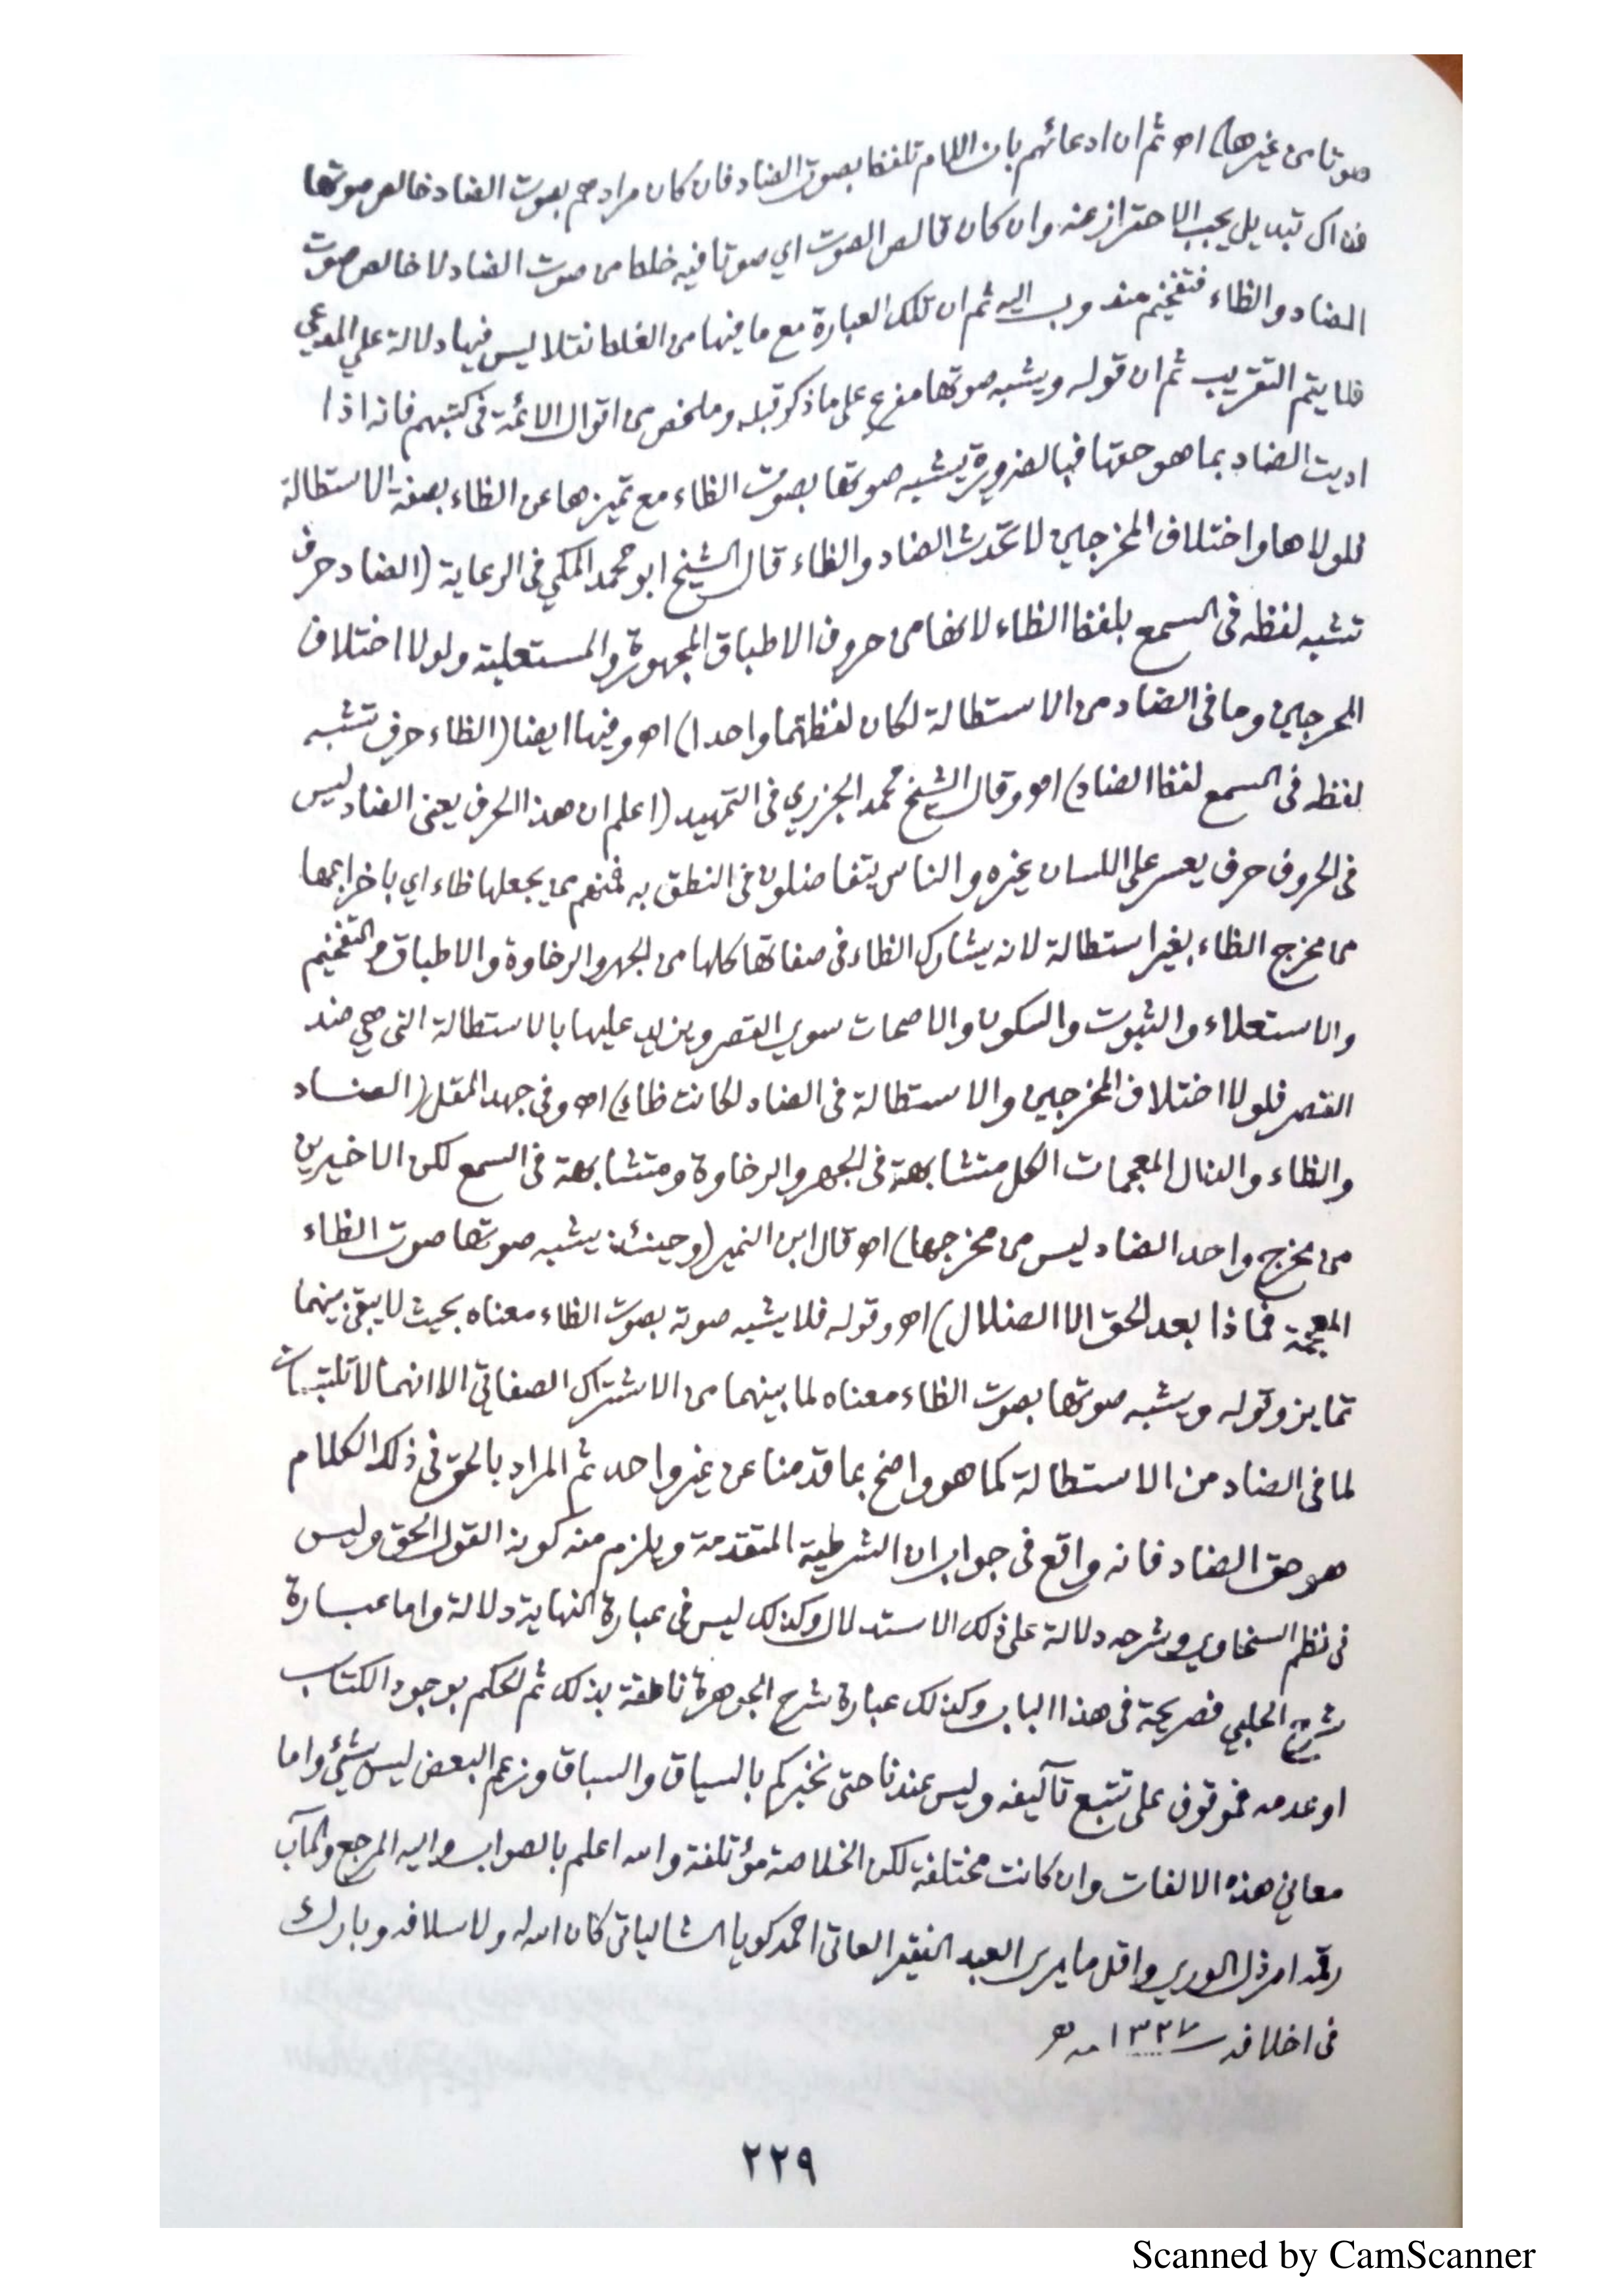 صوتا من غيرها) اه ثم ان ادعائهم بان اللام تلفظ بصوت الضاد فان كان مرادهم بصوت الضاد خالص صوتها
فذاك تبديل يجب الاحتراز عنه وان كان قالص الصوت اي صوتا فيه خلط من صوت الضاد لا خالص صوت
الضاد والظاء فتفخيم مندوب اليه ثم ان تلك العبارة مع ما فيها من الغلط نقلا ليس فيها دلالة علي المدعي
فلا يتم التقريب ثم ان قوله ويشبه صوتها مفرع على ما ذكر قبله وملخص من اقوال الائمة فى كتبهم فانه اذا
اديت الضاد بما هو حقها فبالضرورة يشبه صوتها بصوت الظاء مع تميزها عن الظاء بصفة الاستطالة
فلولاها واختلاف المخرجين لاتحدت الضاد والظاء قال الشيخ ابو محمد المكي فى الرعاية (الضاد حرف
تشبه لفظه فى السمع بلفظ الظاء لانها من حروف الاطباق المجهورة والمستعلية ولولا اختلاف
المخرجين وما فى الضاد من الاستطالة لكان لفظهما واحدا) اه وفيها ايضا (الظاء حرف تشبه
لفظه فى السمع لفظ الضاد) اه وقال الشيخ محمد الجزري فى التمهيد (اعلم ان هذا الحرف يعنى الضاد ليس
فى الحروف حرف يعسر على اللسان غيره والناس يتفاضلون فى النطق به فمنهم من يجعلها ظاء اي باخراجها
من مخرج الظاء بغير استطالة لانه يشارك الظاء فى صفاتها كلها من الجهر والرخاوة والاطباق والتفخيم
والاستعلاء والثبوت والسكون والاصمات سوي القصر ويزيد عليها بالاستطالة التى هي ضد
القصر فلولا اختلاف المخرجين والاستطالة فى الضاد لكانت ظاء) اه وفى جهد المقل (الضاد
والظاء والذال المعجمات الكل متشابهة فى الجهر والرخاوة ومتشابهة فى السمع لكن الاخيرين
من مخرج واحد الضاد ليس من مخرجها) اه قال ابن النمير (وحينئذ يشبه صوتها صوت الظاء
المعجمة فماذا بعد الحق الا الضلال) اه وقوله فلا يشبه صوته بصوت الظاء معناه بحيث لا يبقى بينهما
تمايز وقوله ويشبه صوتها بصوت الظاء معناه لما بينهما من الاشتراك الصفاتي الا انهما لا تلتبسان
لما فى الضاد من الاستطالة كما هو واضح بما قدمنا عن غير واحد ثم المراد بالحق فى ذلك الكلام
هو حق الضاد فانه واقع فى جواب ان الشرطية المتقدمة ويلزم منه كونه القول الحق وليس
فى نظم السخاوي وشرحه دلالة على ذلك الاستدلال وكذلك ليس فى عبارة النهاية دلالة واما عبارة
شرح الحلبي فصريحة فى هذا الباب وكذلك عبارة شرح الجوهرة ناطقة بذلك ثم الحكم بوجود الكتاب
او عدمه فموقوف على تتبع تآليفه وليس عندنا حتى نخبركم بالسياق والسباق وزعم البعض ليس بشئ واما
معاني هذه الالفات وان كانت مختلفة لكن الخلاصة مؤتلفة والله اعلم بالصواب واليه المرجع والمآب
رقمه ارذل الوري واقل ما يرى العبد الفقير العاتى احمد كويا الشالياتى كان الله له ولاسلافه وبارك
فى اخلافه سـ ١٣٢٧ ـنه هـ
٢٢٩
Scanned by CamScanner